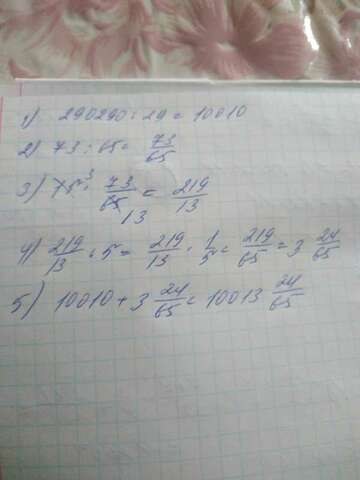 1) 290290 : 29 = 10010
2) 73 : 65 = 73/65
3) 75 · 73/65 = 219/13
4) 219/13 : 5 = 219/13 · 1/5 = 219/65 = 3 24/65
5) 10010 + 3 24/65 = 10013 24/65